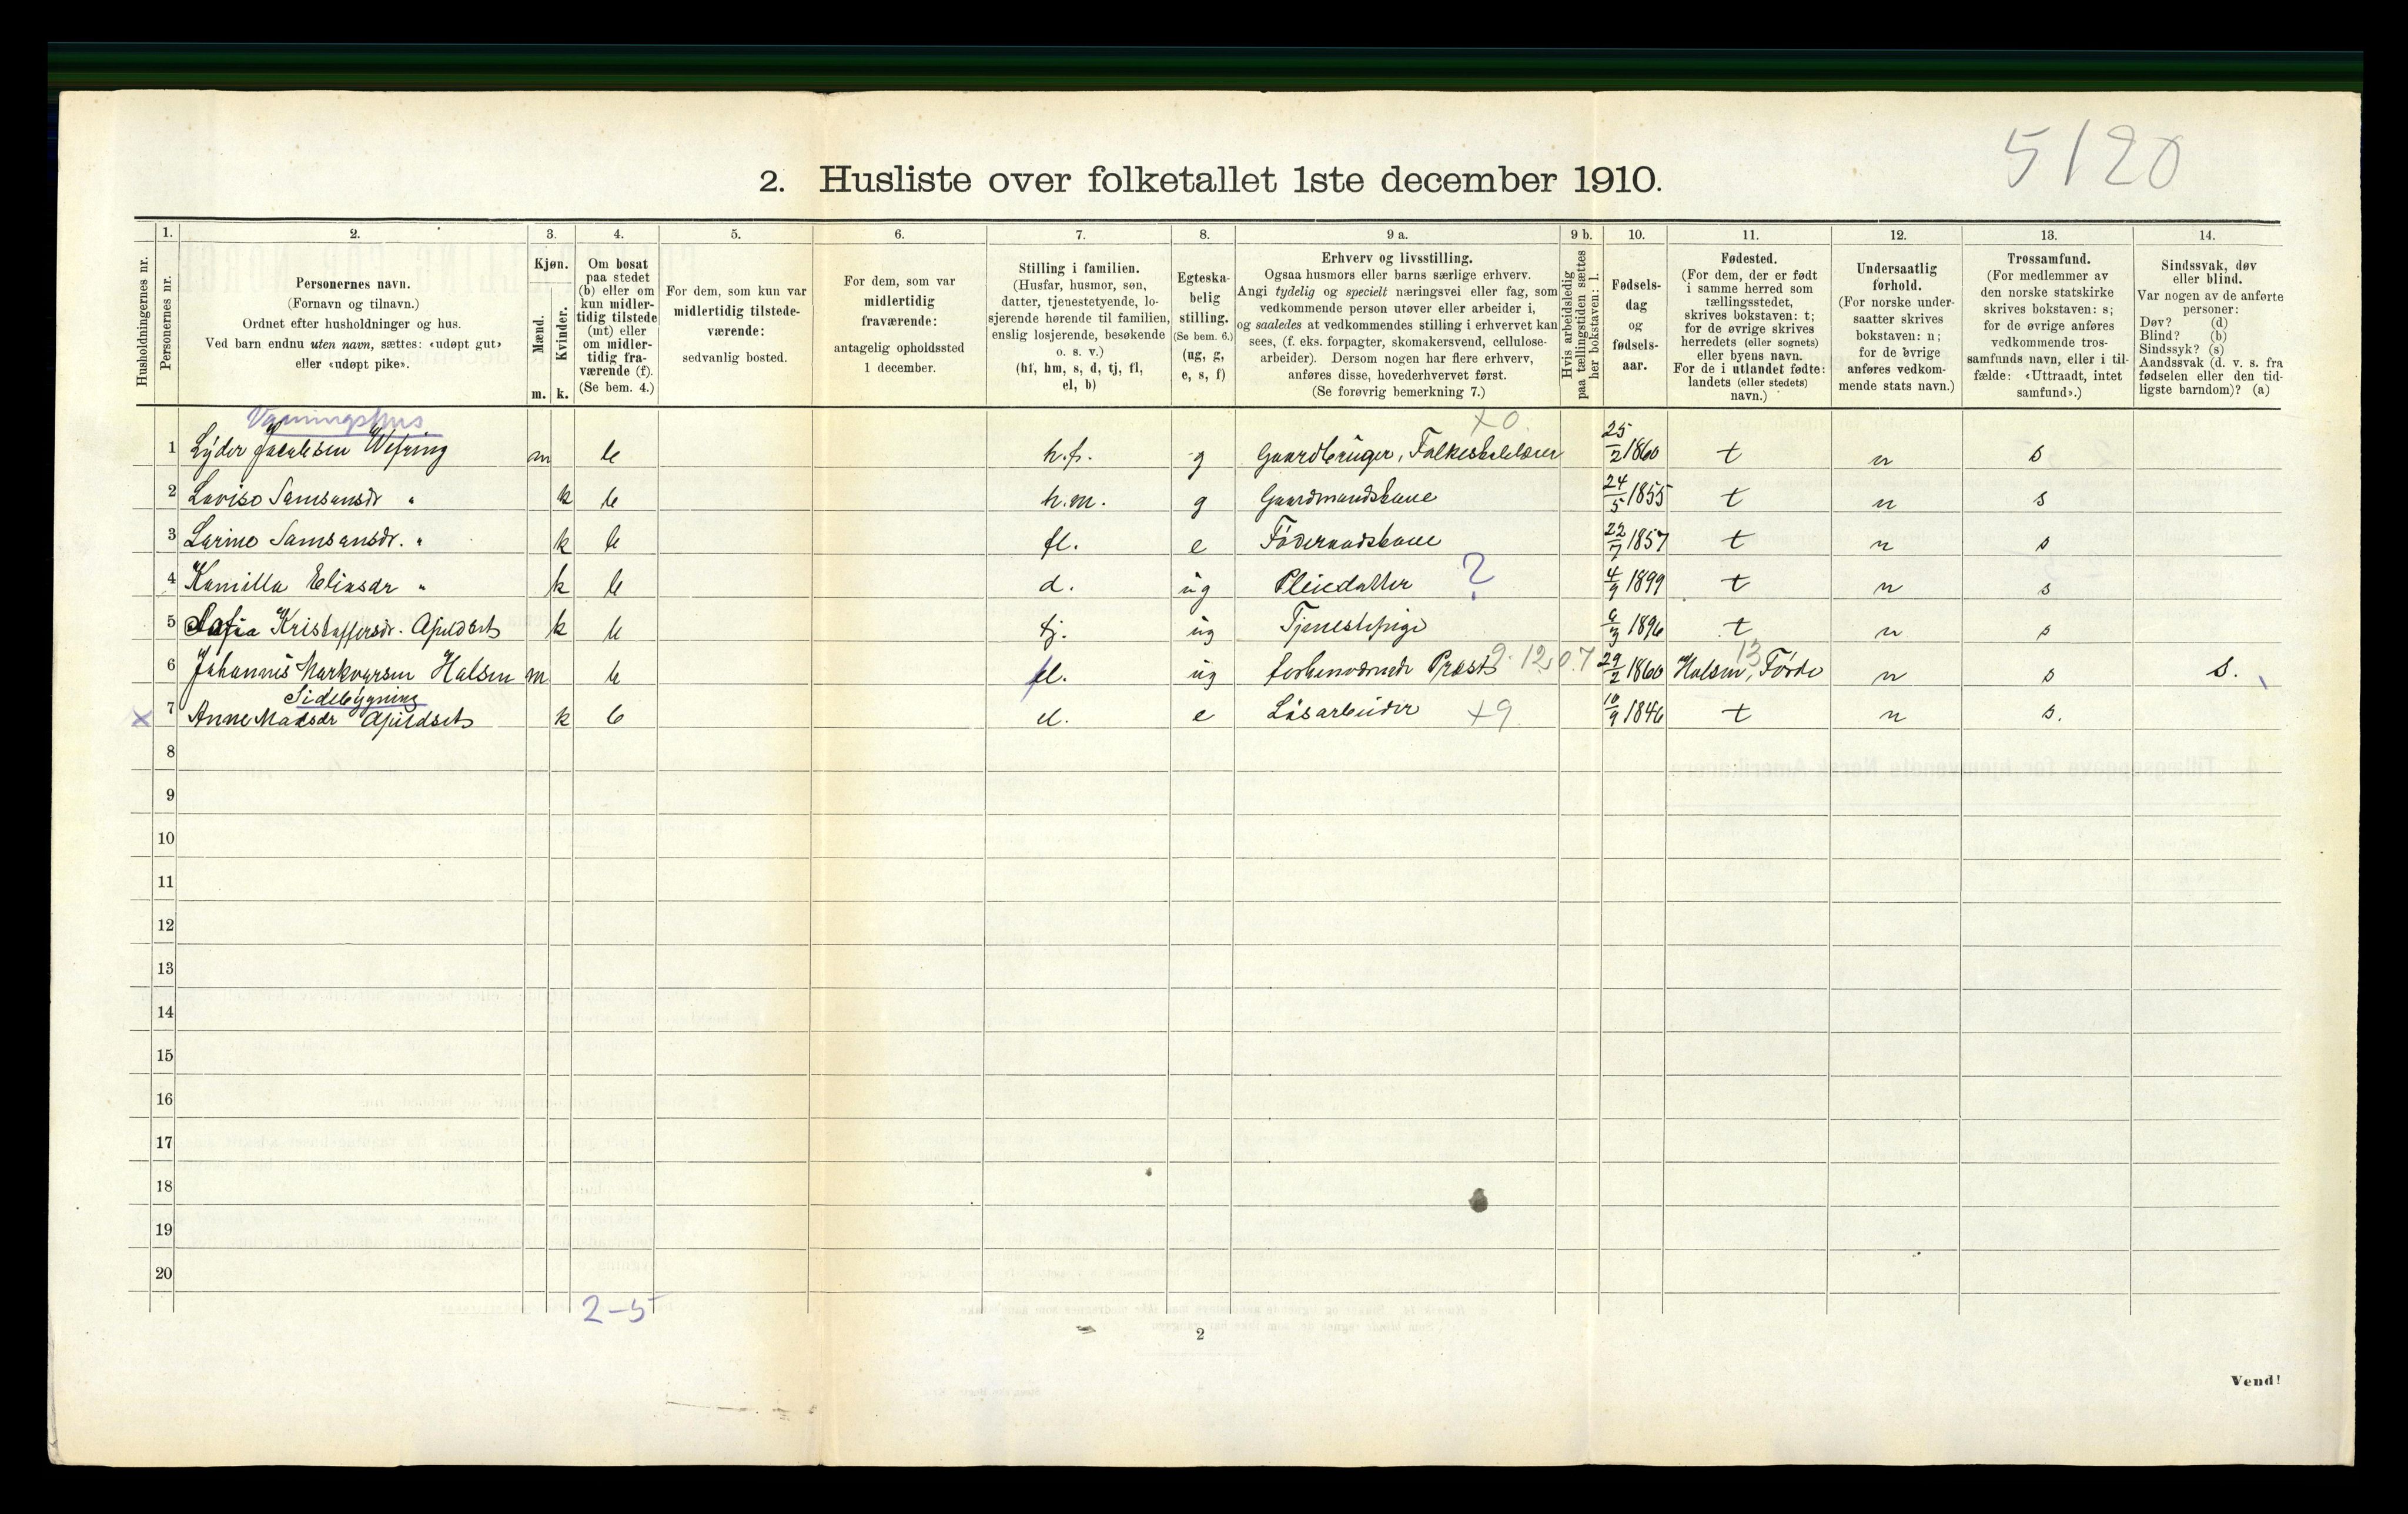 5120
2. Husliste over folketallet 1ste december 1910.
Husholdningernes nr.
1.
Personernes nr.
2.
Personernes navn.
(Fornavn og tilnavn.)
Ordnet efter husholdninger og hus.
Ved barn endnu uten navn, sættes: «udøpt gut»
eller «udøpt pike».
3.
Kjøn.
Mænd.
Kvinder.
m. k.
4.
Om bosat
paa stedet
(b) eller om
kun midler-
tidig tilstede
(mt) eller
om midler-
tidig fra-
værende (f).
(Se bem. 4.)
5.
For dem, som kun var
midlertidig tilstede-
værende:
sedvanlig bosted.
6.
For dem, som var
midlertidig
fraværende:
antagelig opholdssted
1 december.
7.
Stilling i familien.
(Husfar, husmor, søn,
datter, tjenestetyende, lo-
sjerende hørende til familien,
enslig losjerende, besøkende
o. s. v.)
(hf, hm, s, d, tj, fl,
el, b)
8.
Egteska-
belig
stilling.
(Se bem. 6.)
(ug, g,
e, s, f)
9 a.
Erhverv og livsstilling.
Ogsaa husmors eller barns særlige erhverv.
Angi tydelig og specielt næringsvei eller fag, som
vedkommende person utøver eller arbeider i,
og saaledes at vedkommendes stilling i erhvervet kan
sees, (f. eks. forpagter, skomakersvend, cellulose-
arbeider). Dersom nogen har flere erhverv,
anføres disse, hovederhvervet først.
(Se forøvrig bemerkning 7.)
9 b.
Hvis arbeidsledig
paa tællingstiden sættes
her bokstaven: l.
10.
Fødsels-
dag
og
fødsels-
aar.
11.
Fødested.
(For dem, der er født
i samme herred som
tællingsstedet,
skrives bokstaven: t;
for de øvrige skrives
herredets (eller sognets)
eller byens navn.
For de i utlandet fødte:
landets (eller stedets)
navn.)
12.
Undersaatlig
forhold.
(For norske under-
saatter skrives
bokstaven: n;
for de øvrige
anføres vedkom-
mende stats navn.)
13.
Trossamfund.
(For medlemmer av
den norske statskirke
skrives bokstaven: s;
for de øvrige anføres
vedkommende tros-
samfunds navn, eller i til-
fælde: «Uttraadt, intet
samfund».)
14.
Sindssvak, døv
eller blind.
Var nogen av de anførte
personer:
Døv? (d)
Blind? (b)
Sindssyk? (s)
Aandssvak (d. v. s. fra
fødselen eller den tid-
ligste barndom)? (a)
Vaaningshus
+0.
1 Lyder Jacobsen Wefring m b h.f. g Gaardbruger, Folkeskolelærer 25/2 1860 t n s
2 Lovise Samsonsdr " k b h.m. g Gaardmandskone 24/5 1855 t n s
3 Larine Samsonsdr. " k b fl. e Føderaadskone 22/7 1857 t n s
4 Kamilla Eliasdr " k b d. ug Pleiedatter ? 4/9 1899 t n s
5 Sofia Kristoffersdr. Apeldset k b tj. ug Tjenestepige 6/3 1896 t n s
6 Johannes Markvarsen Halsen m b el. ug forhenværende Præst 9.12.0.7 29/2 1860 Halsen, Førde 13 n s s.
Sidebygning
x 7 Anne Madsdr Apeldset k b el. e Løsarbeider +9 10/9 1846 t n s.
8
9
10
11
12
13
14
15
16
17
18
19
20
2-5
2
Vend!